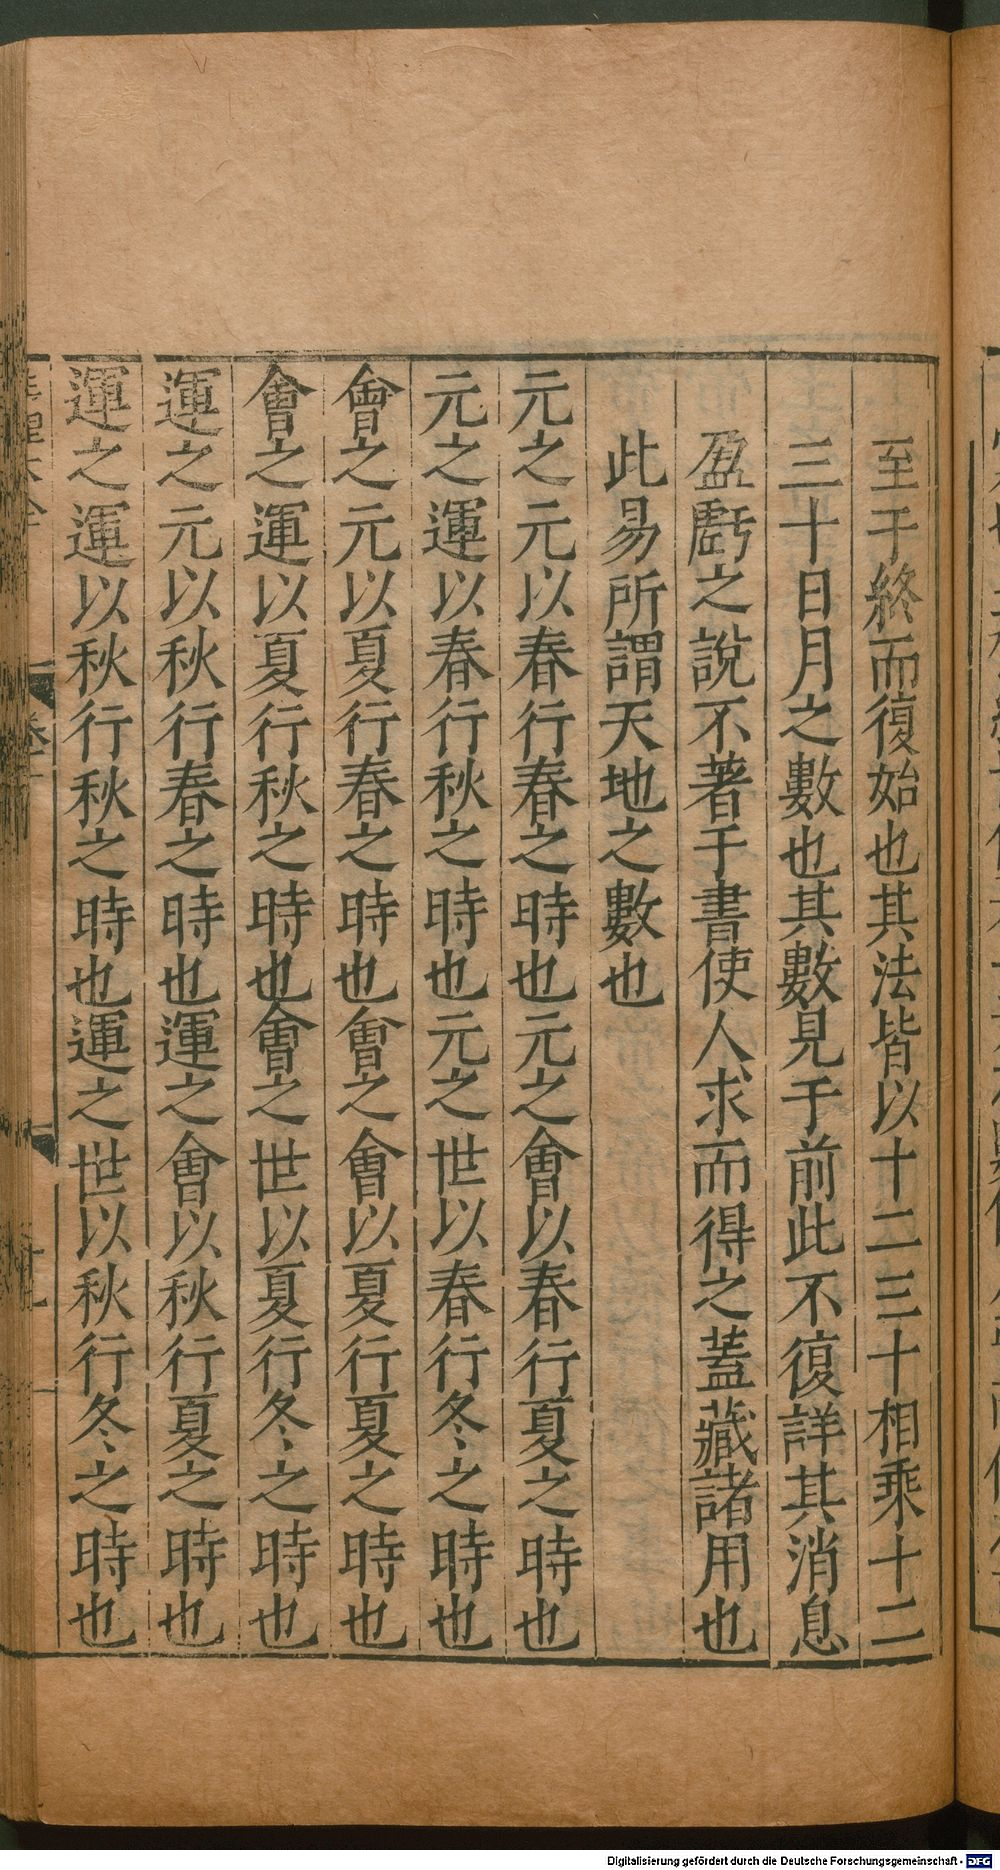 至于終而復始也其法皆以十二三十相乘十二
三十日月之數也其數見于前此不復詳其消息
盈虧之說不著于書使人求而得之蓋藏諸用也
此易所謂天地之數也
元之元以春行春之時也元之會以春行夏之時也
元之運以春行秋之時也元之世以春行冬之時也
會之元以夏行春之時也會之會以夏行夏之時也
會之運以夏行秋之時也會之世以夏行冬之時也
運之元以秋行春之時也運之會以秋行夏之時也
運之運以秋行秋之時也運之世以秋行冬之時也
Digitalisierung gefördert durch die Deutsche Forschungsgemeinschaft - DFG